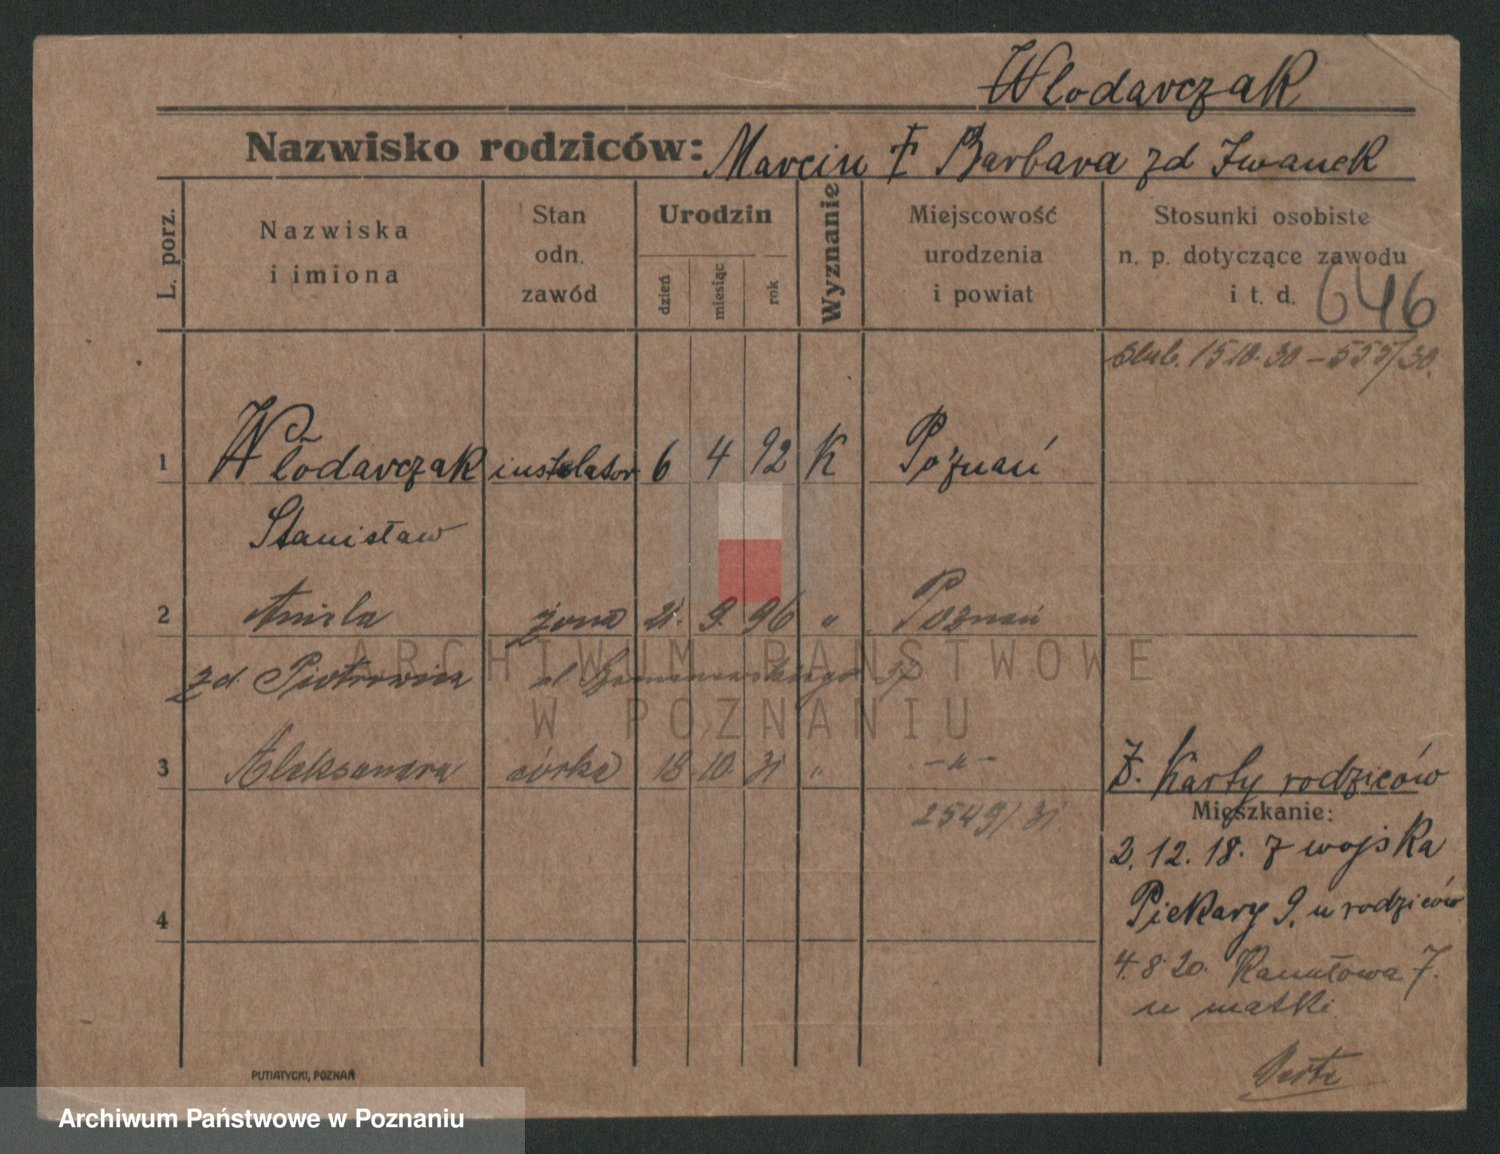 Włodarczak
Nazwisko rodziców: Marcin Ŧ Barbara zd Iwanek
L. porz.
Nazwiska
i imiona
Stan
odn.
zawód
Urodzin
dzień
miesiąc
rok
Wyznanie
Miejscowość
urodzenia
i powiat
Stosunki osobiste
n. p. dotyczące zawodu
i t. d.
646
ślub. 15.10.30 – 555/30.
1 Włodarczak instalator 6 4 92 K Poznań
Stanisław
2 Aniela żona 21. 9. 96 " Poznań
zd. Piotrowicz
3 Aleksandra córka 18 10. 31 " -"-
2549/31.
Z. Karty rodziców
Mieszkanie:
2.12.18. z wojska
Piekary 9. u rodziców
4
4.8.20. 7.
u matki
Verte
PUTIATYCKI, POZNAŃ
ARCHIWUM PAŃSTWOWE
W POZNANIU
Archiwum Państwowe w Poznaniu